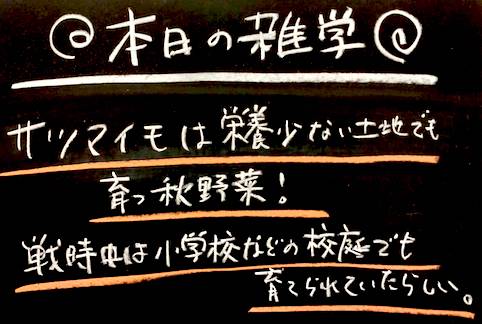 本日の雑学
サツマイモは栄養少ない土地でも
育つ秋野菜!
戦時中は小学校などの校庭でも
育てられていたらしい。